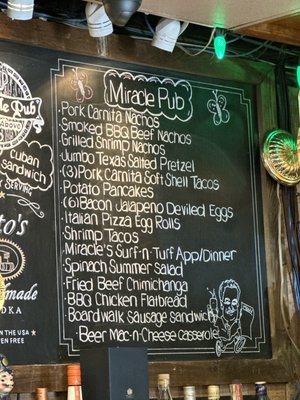 Miracle Pub
·Pork Carnita Nachos
·Smoked BBQ Beef Nachos
·Grilled Shrimp Nachos
·Jumbo Texas Salted Pretzel
·(3)Pork Carnita Soft Shell Tacos
·Potato Pancakes
·(6)Bacon Jalapeno Deviled Eggs
·Italian Pizza Egg Rolls
·Shrimp Tacos
·Miracle's Surf-n-Turf App/Dinner
·Spinach Summer Salad
·Fried Beef Chimichanga
·BBQ Chicken Flatbread
·Boardwalk Sausage Sandwich
·Beer Mac-n-Cheese Casserole
Pub
Cuban
Sandwich
Serving
to's
made
DKA
IN THE USA
EN FREE